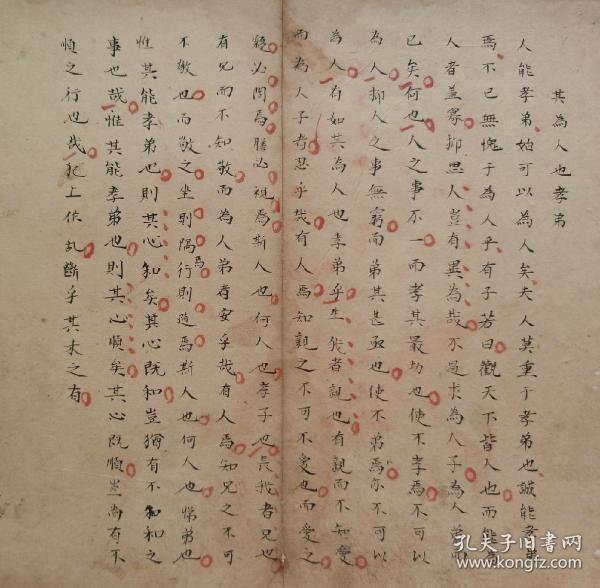 其為人也孝弟
人能孝弟始可以為人矣夫人莫重于孝弟也誠能孝弟
焉不已無愧于為人乎有子若曰觀天下皆人也而能為
人者蓋寡抑思人豈有異為哉不過求為人子為人弟而
已矣何也人之事不一而孝其最切也使不孝焉不可以
為人抑人之事無窮而弟其甚亟也使不弟焉亦不可以
為人有如其為人也孝弟乎生我者親也有親而不知愛
而為人子者忍乎哉有人焉知親之不可不愛也而愛之
必問焉膳必視焉斯人也何人也孝子也長我者兄也
有兄而不知敬而為人弟者安乎哉有人焉知兄之不可
不敬也而敬之坐則隅焉行則隨焉斯人也何人也悌弟也
惟其能孝弟也則其心和矣其心既和豈猶有不和之
事也哉惟其能孝弟也則其心順矣其心既順豈尚有不
順之行也哉犯上作乱斷乎其未之有
孔夫子旧书网